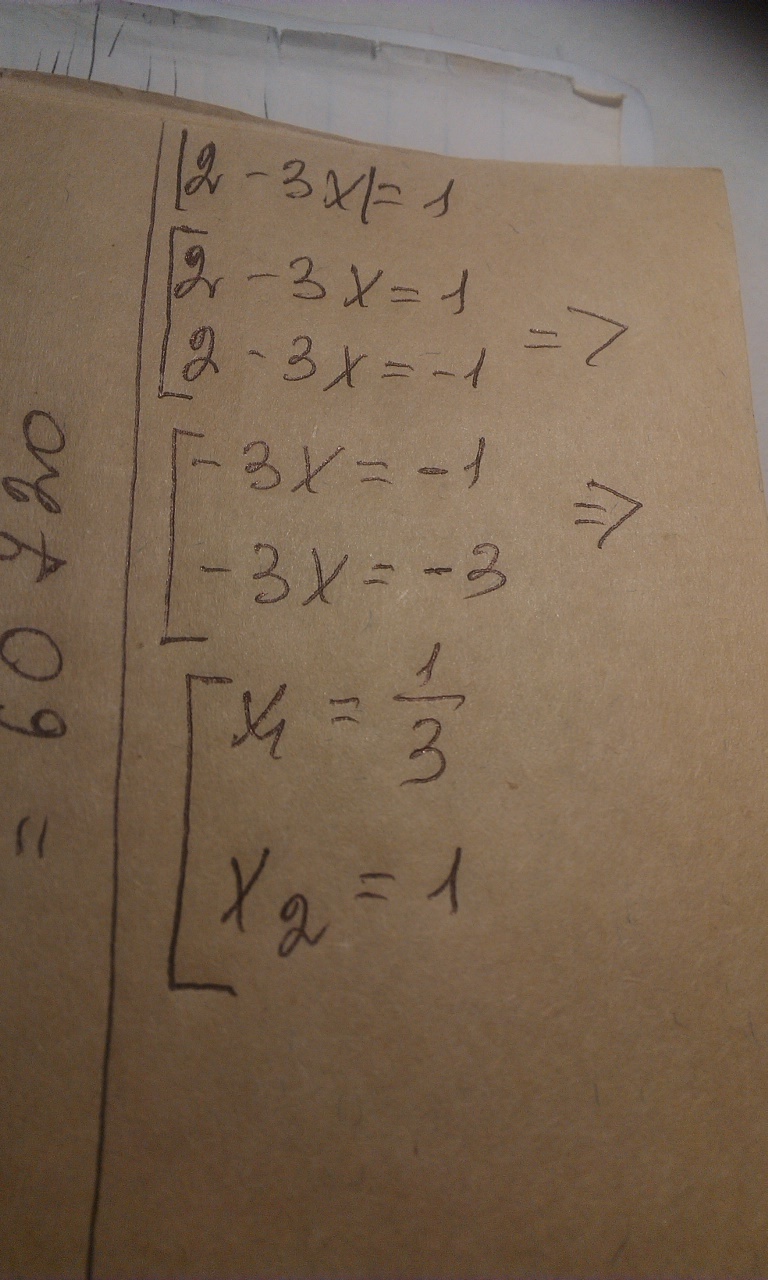 |2 - 3x| = 1
[2 - 3x = 1
[2 - 3x = -1 =>
[-3x = -1
[-3x = -3 =>
[x₁ = 1/3
[x₂ = 1
= 60 420